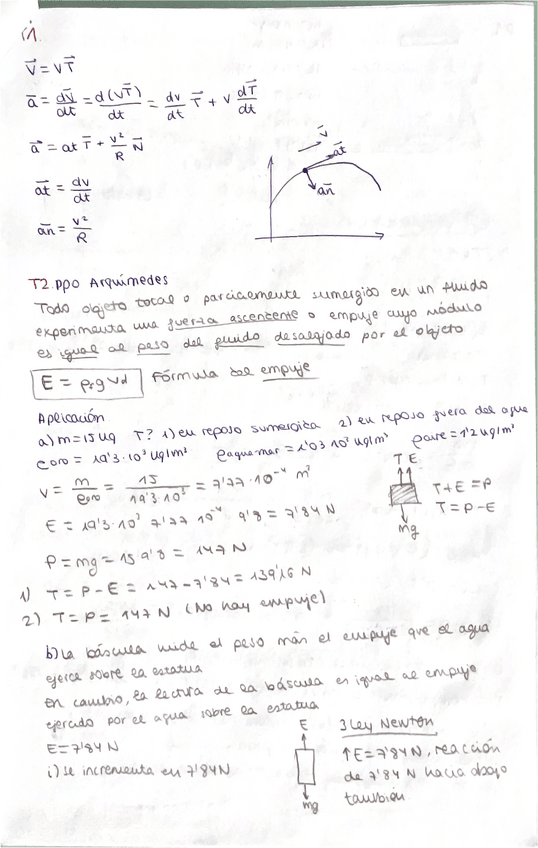 V⃗ = vT⃗
a⃗ = dv⃗/dt = d(vT⃗)/dt = dv/dt T⃗ + v dT⃗/dt
a⃗ = at T⃗ + v²/R N⃗
v⃗
at⃗
an⃗
at⃗ = dv/dt
an⃗ = v²/R
T2. ppo Arquímedes
Todo objeto total o parcialemente sumergido en un fluido
experimenta una fuerza ascentente o empuje cuyo módulo
es igual al peso del fluido desalojado por el objeto
E = ρf g Vd Fórmula del empuje
Aplicación
a) m = 15 kg T? 1) en reposo sumergica 2) en reposo fuera del agua
ρoro = 19'3·10³ kg/m³ ρagua mar = 1'03 10³ kg/m³ ρaire = 1'2 kg/m³
V = m/ρoro = 15/19'3·10³ = 7'77·10⁻⁴ m³
T E
T + E = P
T = P - E
mg
E = 19'3·10³ 7'77 10⁻⁴ 9'8 = 7'84 N
P = mg = 15 9'8 = 147 N
1) T = P - E = 147 - 7'84 = 139'16 N
2) T = P = 147 N (No hay empuje)
b) La báscula mide el peso más el empuje que el agua
ejerce sobre la estatua
en cambio, la lectura de la báscula es igual al empuje
ejercido por el agua sobre la estatua
E = 7'84 N
i) se incrementa en 7'84 N
E
mg
3 Ley Newton
↑E = 7'84 N, reacción
de 7'84 N hacia abajo
también